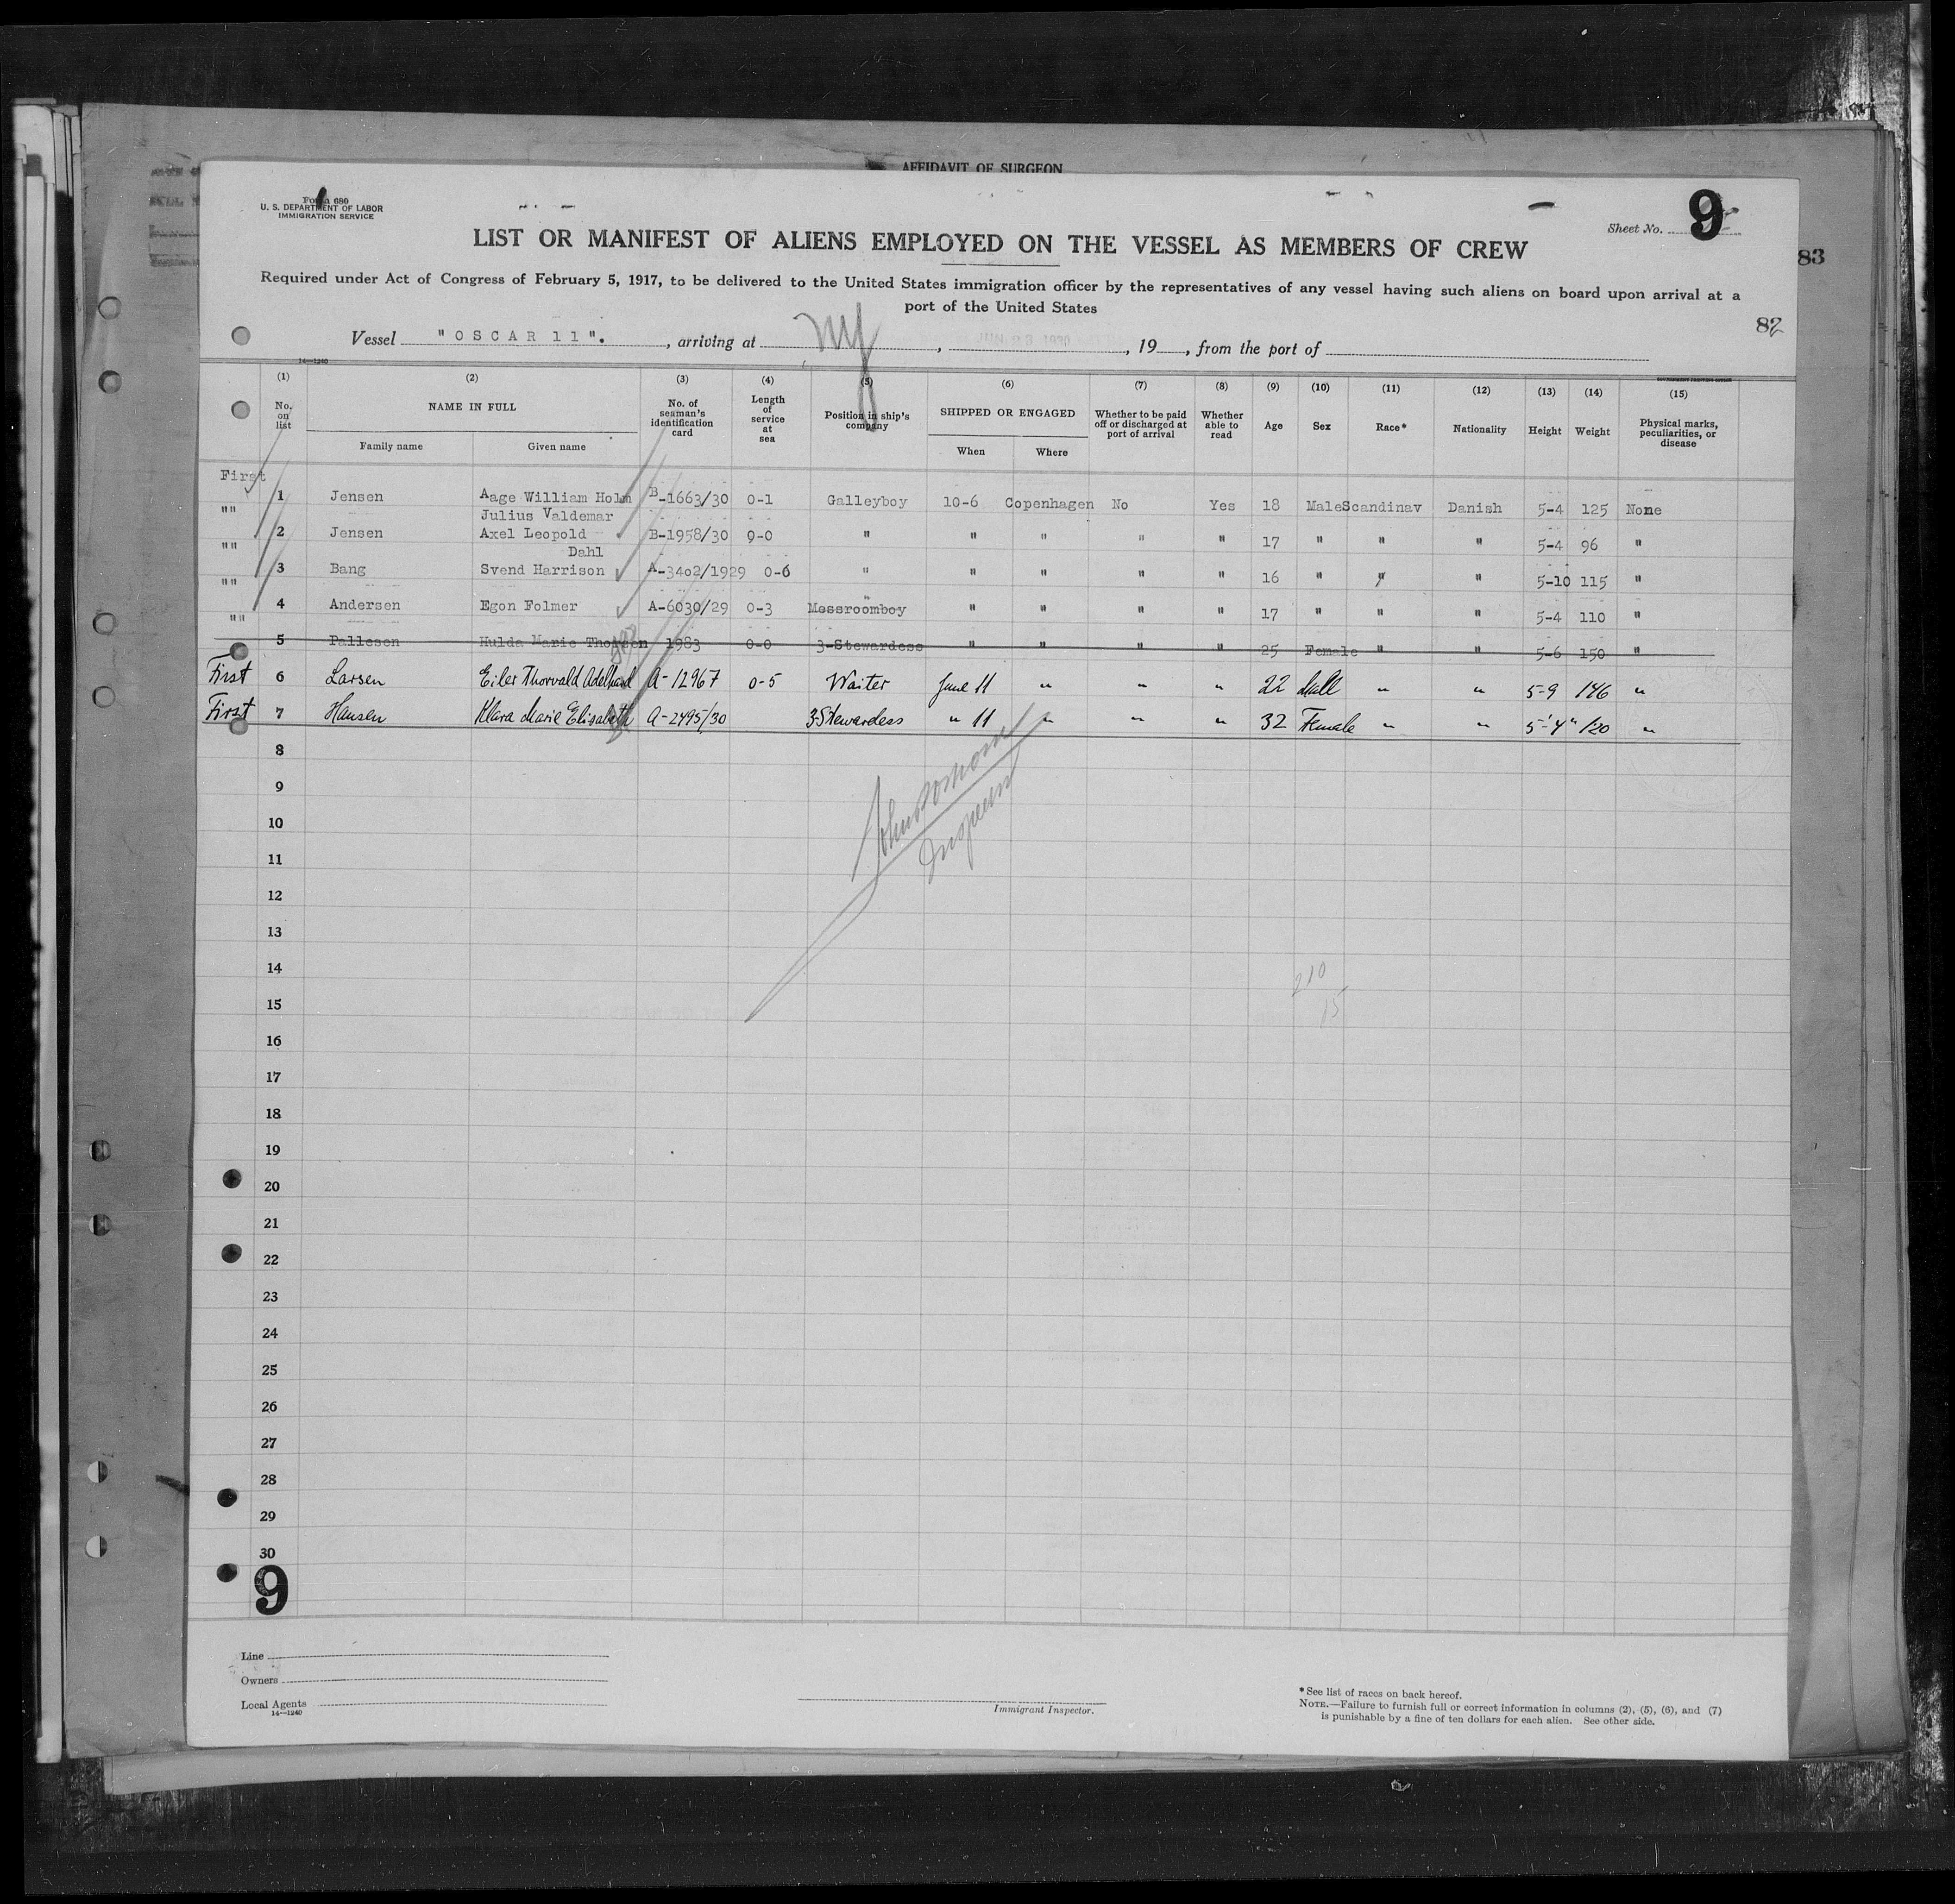 AFFIDAVIT OF SURGEON
Form 680
U. S. DEPARTMENT OF LABOR
IMMIGRATION SERVICE
Sheet No. 9
LIST OR MANIFEST OF ALIENS EMPLOYED ON THE VESSEL AS MEMBERS OF CREW
83
Required under Act of Congress of February 5, 1917, to be delivered to the United States immigration officer by the representatives of any vessel having such aliens on board upon arrival at a
port of the United States
82
Vessel "OSCAR 11". , arriving at NY , JUN 23 1930 , 19 , from the port of
14—1240
(1) (2) (3) (4) (5) (6) (7) (8) (9) (10) (11) (12) (13) (14) (15)
No. on list NAME IN FULL No. of seaman's identification card Length of service at sea Position in ship's company SHIPPED OR ENGAGED Whether to be paid off or discharged at port of arrival Whether able to read Age Sex Race* Nationality Height Weight Physical marks, peculiarities, or disease
Family name Given name When Where
First 1 Jensen Aage William Holm B-1663/30 0-1 Galleyboy 10-6 Copenhagen No Yes 18 Male Scandinav Danish 5-4 125 None
Julius Valdemar
"" 2 Jensen Axel Leopold B-1958/30 9-0 " " " " " 17 " " " 5-4 96 "
Dahl
"" 3 Bang Svend Harrison A-3402/1929 0-6 " " " " " 16 " " " 5-10 115 "
"" 4 Andersen Egon Folmer A-6030/29 0-3 Messroomboy " " " " 17 " " " 5-4 110 "
"" 5 Pallesen Hulda Marie Thomsen 1983 0-0 3-Stewardess " " " " 25 Female " " 5-6 150 "
First 6 Larsen Eiler Thorvald Adelhard A-12967 0-5 Waiter June 11 " " " 22 Male " " 5-9 146 "
First 7 Hansen Klara Marie Elisabeth A-2495/30 3-Stewardess " 11 " " " 32 Female " " 5'-4" 120 "
8
9
10
11
12
13
14
210
15
15
16
17
18
19
20
21
22
23
24
25
26
27
28
29
30
9
Line
Owners
Local Agents
14—1240
Immigrant Inspector.
*See list of races on back hereof.
NOTE.—Failure to furnish full or correct information in columns (2), (5), (6), and (7)
is punishable by a fine of ten dollars for each alien. See other side.